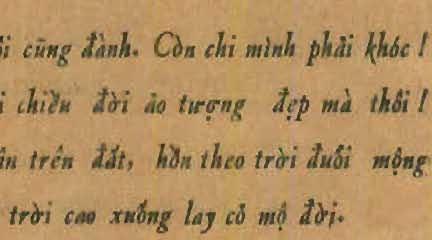 cũng đành. Còn chi mình phải khóc !
chiều đời ảo tượng đẹp mà thôi !
trên đất, hồn theo trời đuổi mộng
trời cao xuống lay cỏ mộ đời.